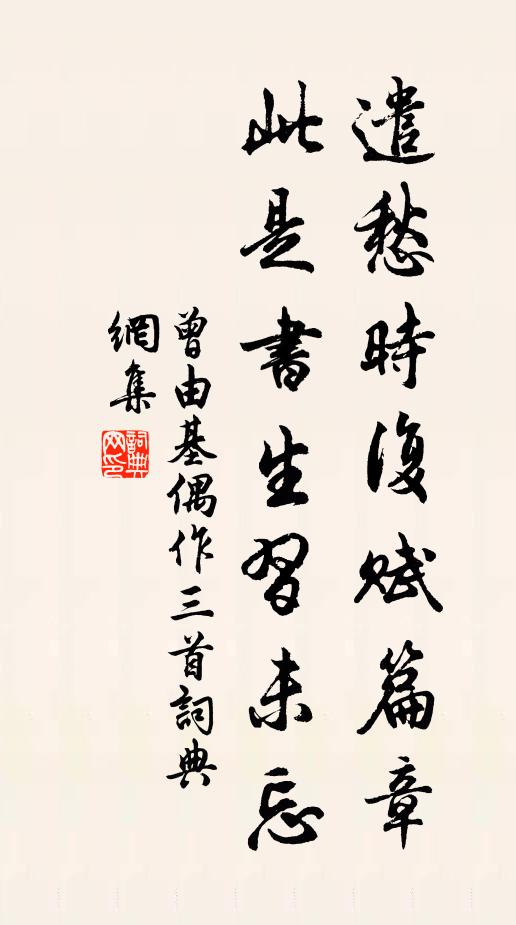 遣愁時復賦篇章
此是書生習未忘
曾由基偶作三首詞典
網集
詞典網印